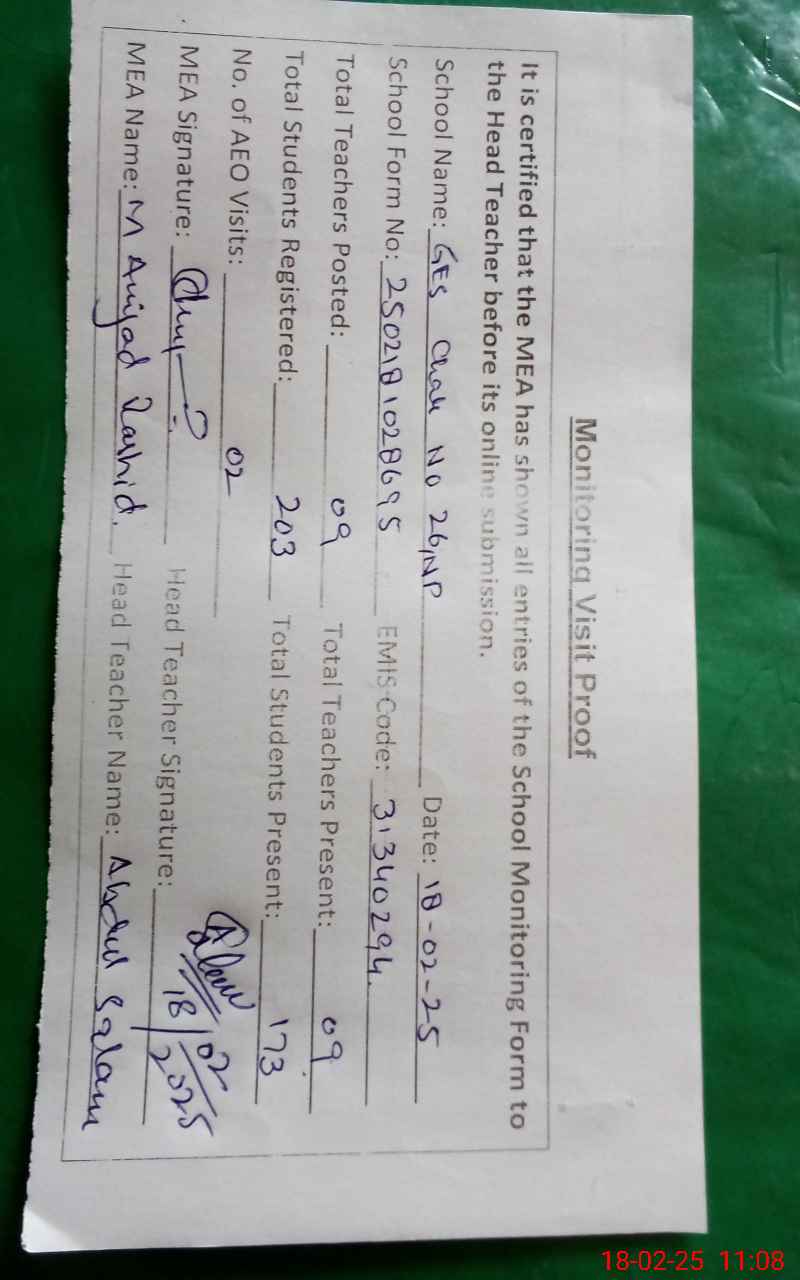 Monitoring Visit Proof
It is certified that the MEA has shown all entries of the School Monitoring Form to
the Head Teacher before its online submission.
School Name: GES Chak No 26/NP Date: 18-02-25
School Form No: 2502181028695 EMIS Code: 31340294
Total Teachers Posted: 09 Total Teachers Present: 09
Total Students Registered: 203 Total Students Present: 173
No. of AEO Visits: 02
MEA Signature: Head Teacher Signature: 18/02/2025
MEA Name: M Amjad Rashid. Head Teacher Name: Abdul Salam
18-02-25 11:08